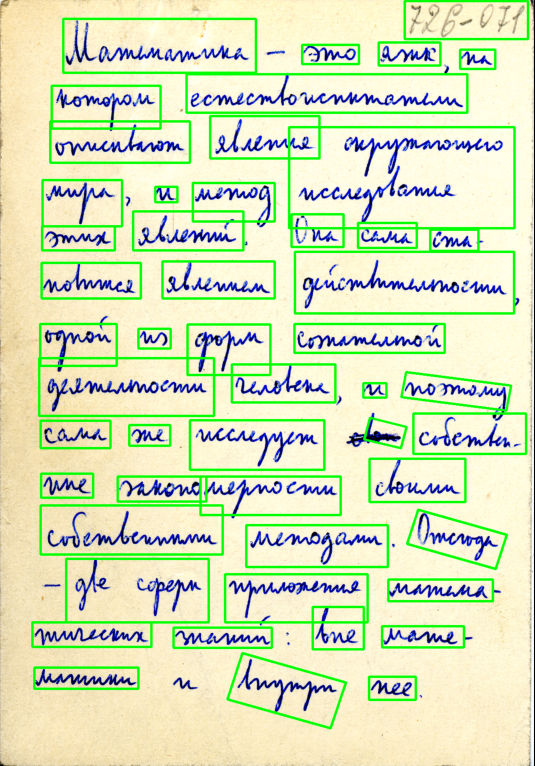 726-071
Математика – это язык, на
котором естествоиспытатели
описывают явления окружающего
мира, и метод исследования
этих явлений. Она сама ста-
новится явлением действительности,
одной из форм сознательной
деятельности человека, и поэтому
сама же исследует собствен-
ные закономерности своими
собственными методами. Отсюда
– две сферы приложения матема-
тических знаний: вне мате-
матики и внутри нее.